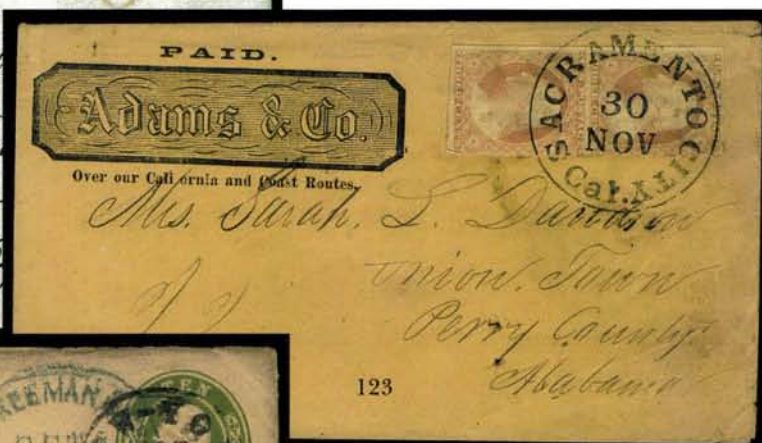 PAID.
Adams & Co.
Over our Cali ornia and Coast Routes.
SACRAMENTO CITY
30
NOV
Cal.
Mrs. Sarah. L. Davidson
Union. Town
Perry County
Alabama
123
FREEMAN
TEN
N-YO